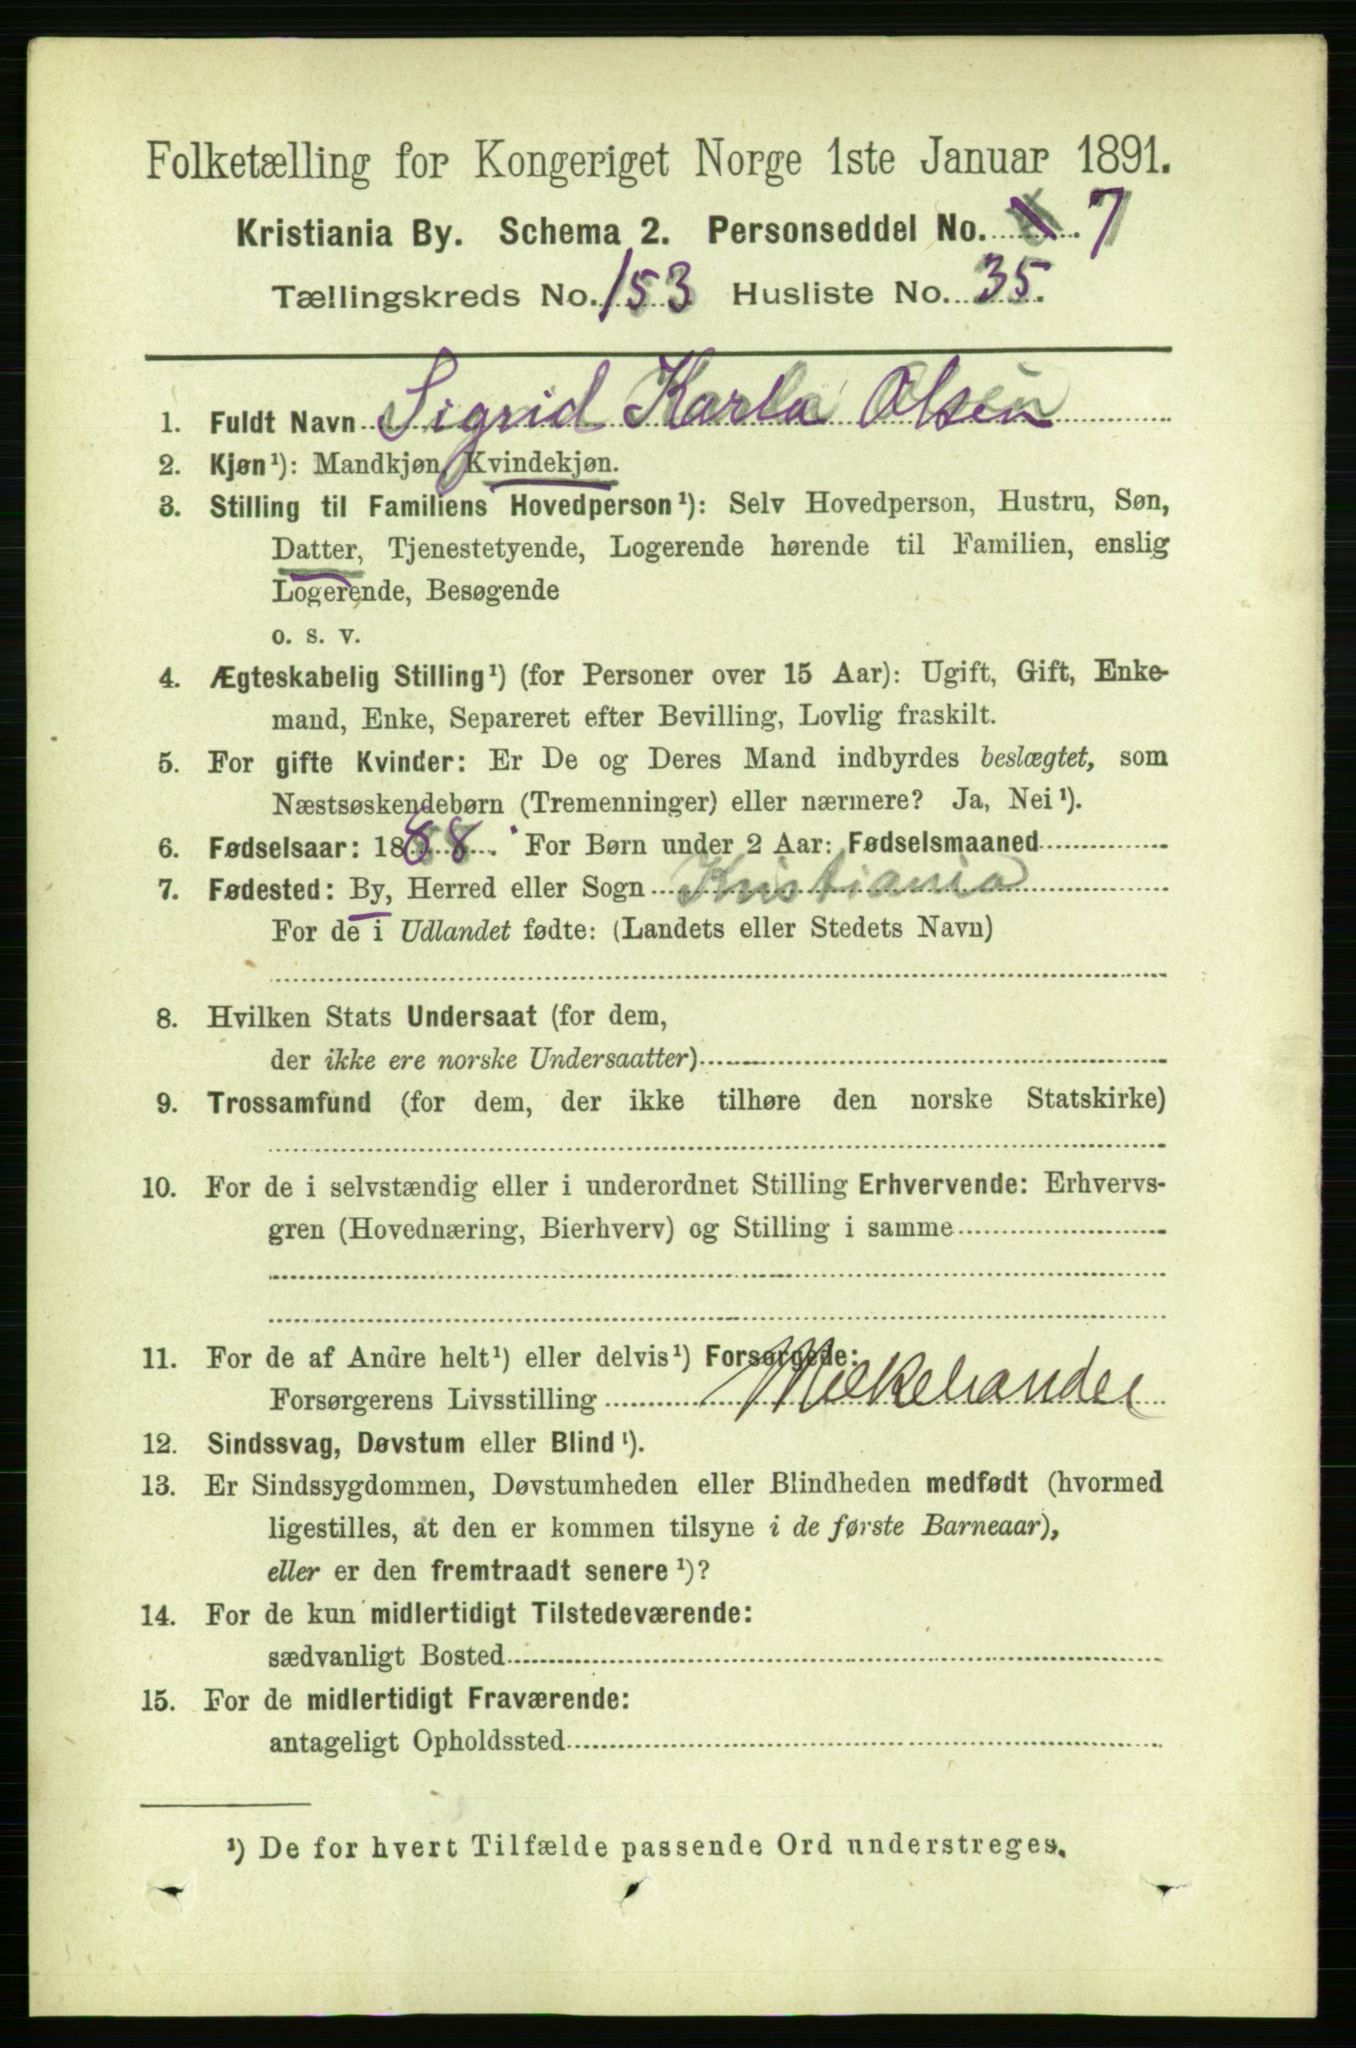 Folketælling for Kongeriget Norge 1ste Januar 1891.
Kristiania By. Schema 2. Personseddel No. 7
Tællingskreds No. 153 Husliste No. 35.
1. Fuldt Navn Sigrid Karla Olsen
2. Kjøn¹): Mandkjøn, Kvindekjøn.
3. Stilling til Familiens Hovedperson¹): Selv Hovedperson, Hustru, Søn,
Datter, Tjenestetyende, Logerende hørende til Familien, enslig
Logerende, Besøgende
o. s. v.
4. Ægteskabelig Stilling¹) (for Personer over 15 Aar): Ugift, Gift, Enke-
mand, Enke, Separeret efter Bevilling, Lovlig fraskilt.
5. For gifte Kvinder: Er De og Deres Mand indbyrdes beslægtet, som
Næstsøskendebørn (Tremenninger) eller nærmere? Ja, Nei¹).
6. Fødselsaar: 1888. For Børn under 2 Aar: Fødselsmaaned
7. Fødested: By, Herred eller Sogn Kristiania
For de i Udlandet fødte: (Landets eller Stedets Navn)
8. Hvilken Stats Undersaat (for dem,
der ikke ere norske Undersaatter)
9. Trossamfund (for dem, der ikke tilhøre den norske Statskirke)
10. For de i selvstændig eller i underordnet Stilling Erhvervende: Erhvervs-
gren (Hovednæring, Bierhverv) og Stilling i samme
11. For de af Andre helt¹) eller delvis¹) Forsørgede:
Forsørgerens Livsstilling Melkehandel
12. Sindssvag, Døvstum eller Blind¹).
13. Er Sindssygdommen, Døvstumheden eller Blindheden medfødt (hvormed
ligestilles, at den er kommen tilsyne i de første Barneaar),
eller er den fremtraadt senere¹)?
14. For de kun midlertidigt Tilstedeværende:
sædvanligt Bosted
15. For de midlertidigt Fraværende:
antageligt Opholdssted
¹) De for hvert Tilfælde passende Ord understreges.